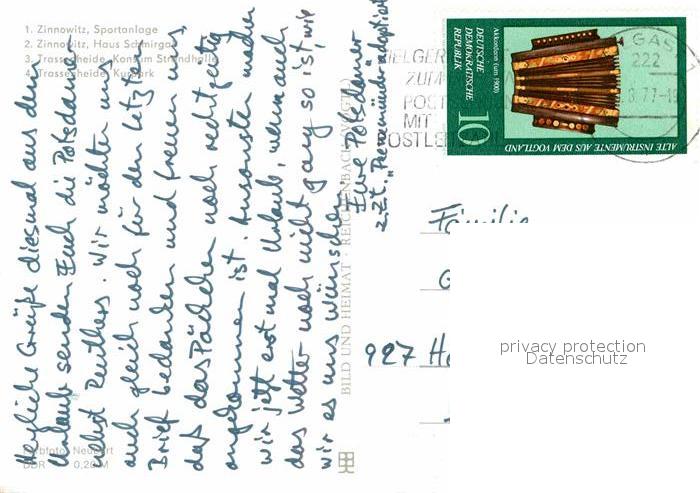 1. Zinnowitz, Sportanlage
2. Zinnowitz, Haus Schmirgal
3. Trassenheide, Konsum Strandhalle
4. Trassenheide, Kurpark
Herzliche Grüße diesmal aus dem
Urlaub senden Euch die Potsdamer
nebst Reuthers. Wir möchten uns
auch gleich noch für den letzten
Brief bedanken und freuen uns,
daß das Päckchen noch rechtzeitig
angekommen ist. Ansonsten machen
wir jetzt erst mal Urlaub, wenn auch
das Wetter noch nicht ganz so ist, wie
wir es uns wünschen.
Eure Potsdamer
z. Zt. "Peenemünde"
Farbfoto: Neubert
DDR 0,20 M
BILD UND HEIMAT · REICHENBACH (VOGTL)
ZUM
POST
MIT
POSTLE
GAS
222
77-1
Akkordeon (um 1900)
DEUTSCHE
DEMOKRATISCHE
REPUBLIK
10
ALTE INSTRUMENTE AUS DEM VOGTLAND
Familie
G
927 Ho
privacy protection
Datenschutz